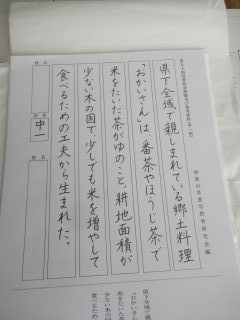 県下全域で親しまれている郷土料理
「おかいさん」は、番茶やほうじ茶で
米をたいた茶がゆのこと。耕地面積が
少ない木の国で、少しでも米を増やして
食べるための工夫から生まれた。
学年
中一
氏名
和歌山県書写教育研究会編